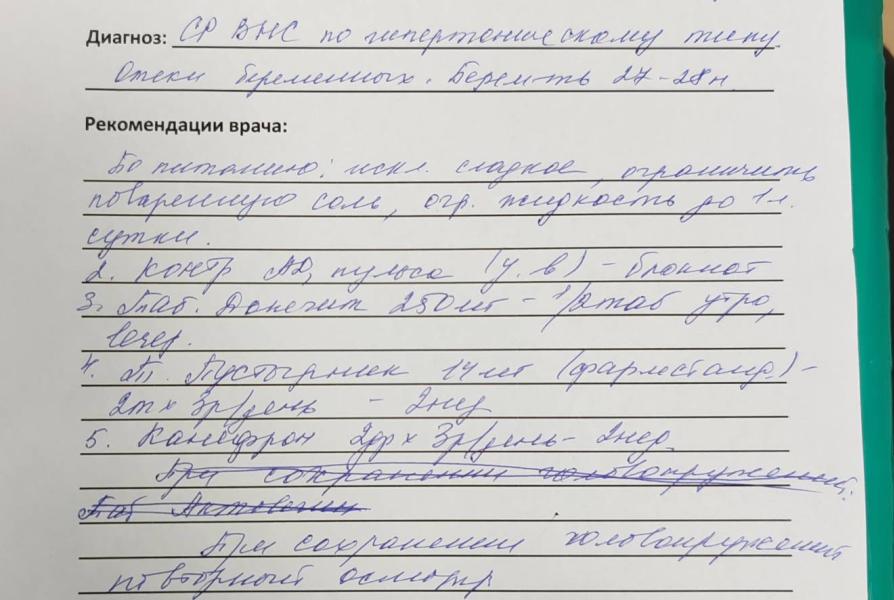 Диагноз: СР ВНС по гипертоническому типу.
Отеки беременных. Берем-ть 27-28н.
Рекомендации врача:
По питанию: искл. сладкое, ограничить
поваренную соль, огр. жидкость до 1л.
сутки.
2. Контр АД, пульса (у. в) - блокнот
3. Таб. Допегит 250мг - 1/2таб утро,
вечер.
4. Т. Пустырник 14мг (фармстанд.) -
2т х 3р/день - 2нед
5. Канефрон 2др х 3р/день - 2нед.
При сохранении головокружений.
Таб Актовегин
При сохранении головокружений
повторный осмотр